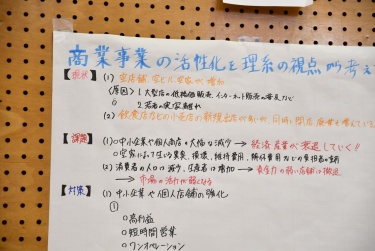 商業事業の活性化を理系の視点から考え
【現状】(1) 空店舗、空ビル空家が増加
(原因) 1 大型店の低価格販売、インターネット販売の普及など
2 若者の実家離れ
(2) 飲食店などの小売店の新規出店が多いが、同時に閉店、廃業も増えている
【課題】(1) ○中小企業や個人商店の大幅な減少 → 経済産業が衰退していく!!
○空家によって生じる異臭、損壊、維持費用、解体費用などの負担者の
(2) 消費者の人口は減少、生産者は増加 → 生産力の弱い店舗は撤退
→ 市場の活力が弱くなる
【対策】(1) 中小企業や個人店舗の強化
①
○高利益
○短時間営業
○ワンオペレーション